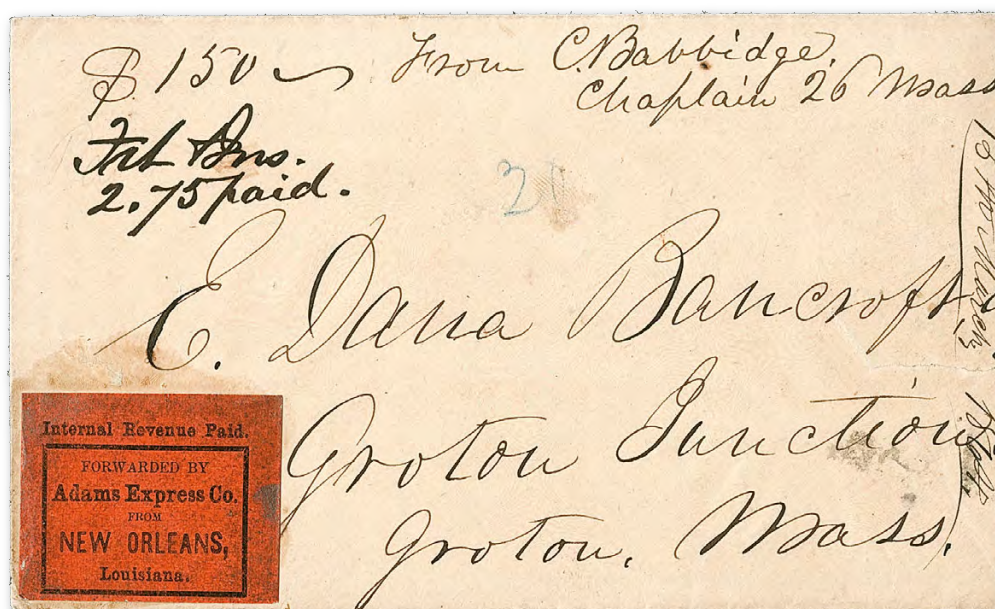 $150 From C. Babbidge.
Chaplain 26 Mass
Frt & Ins.
2.75 paid.
E. Dana Bancroft
Groton Junction
Groton, Mass.
Internal Revenue Paid.
FORWARDED BY
Adams Express Co.
FROM
NEW ORLEANS,
Louisiana.